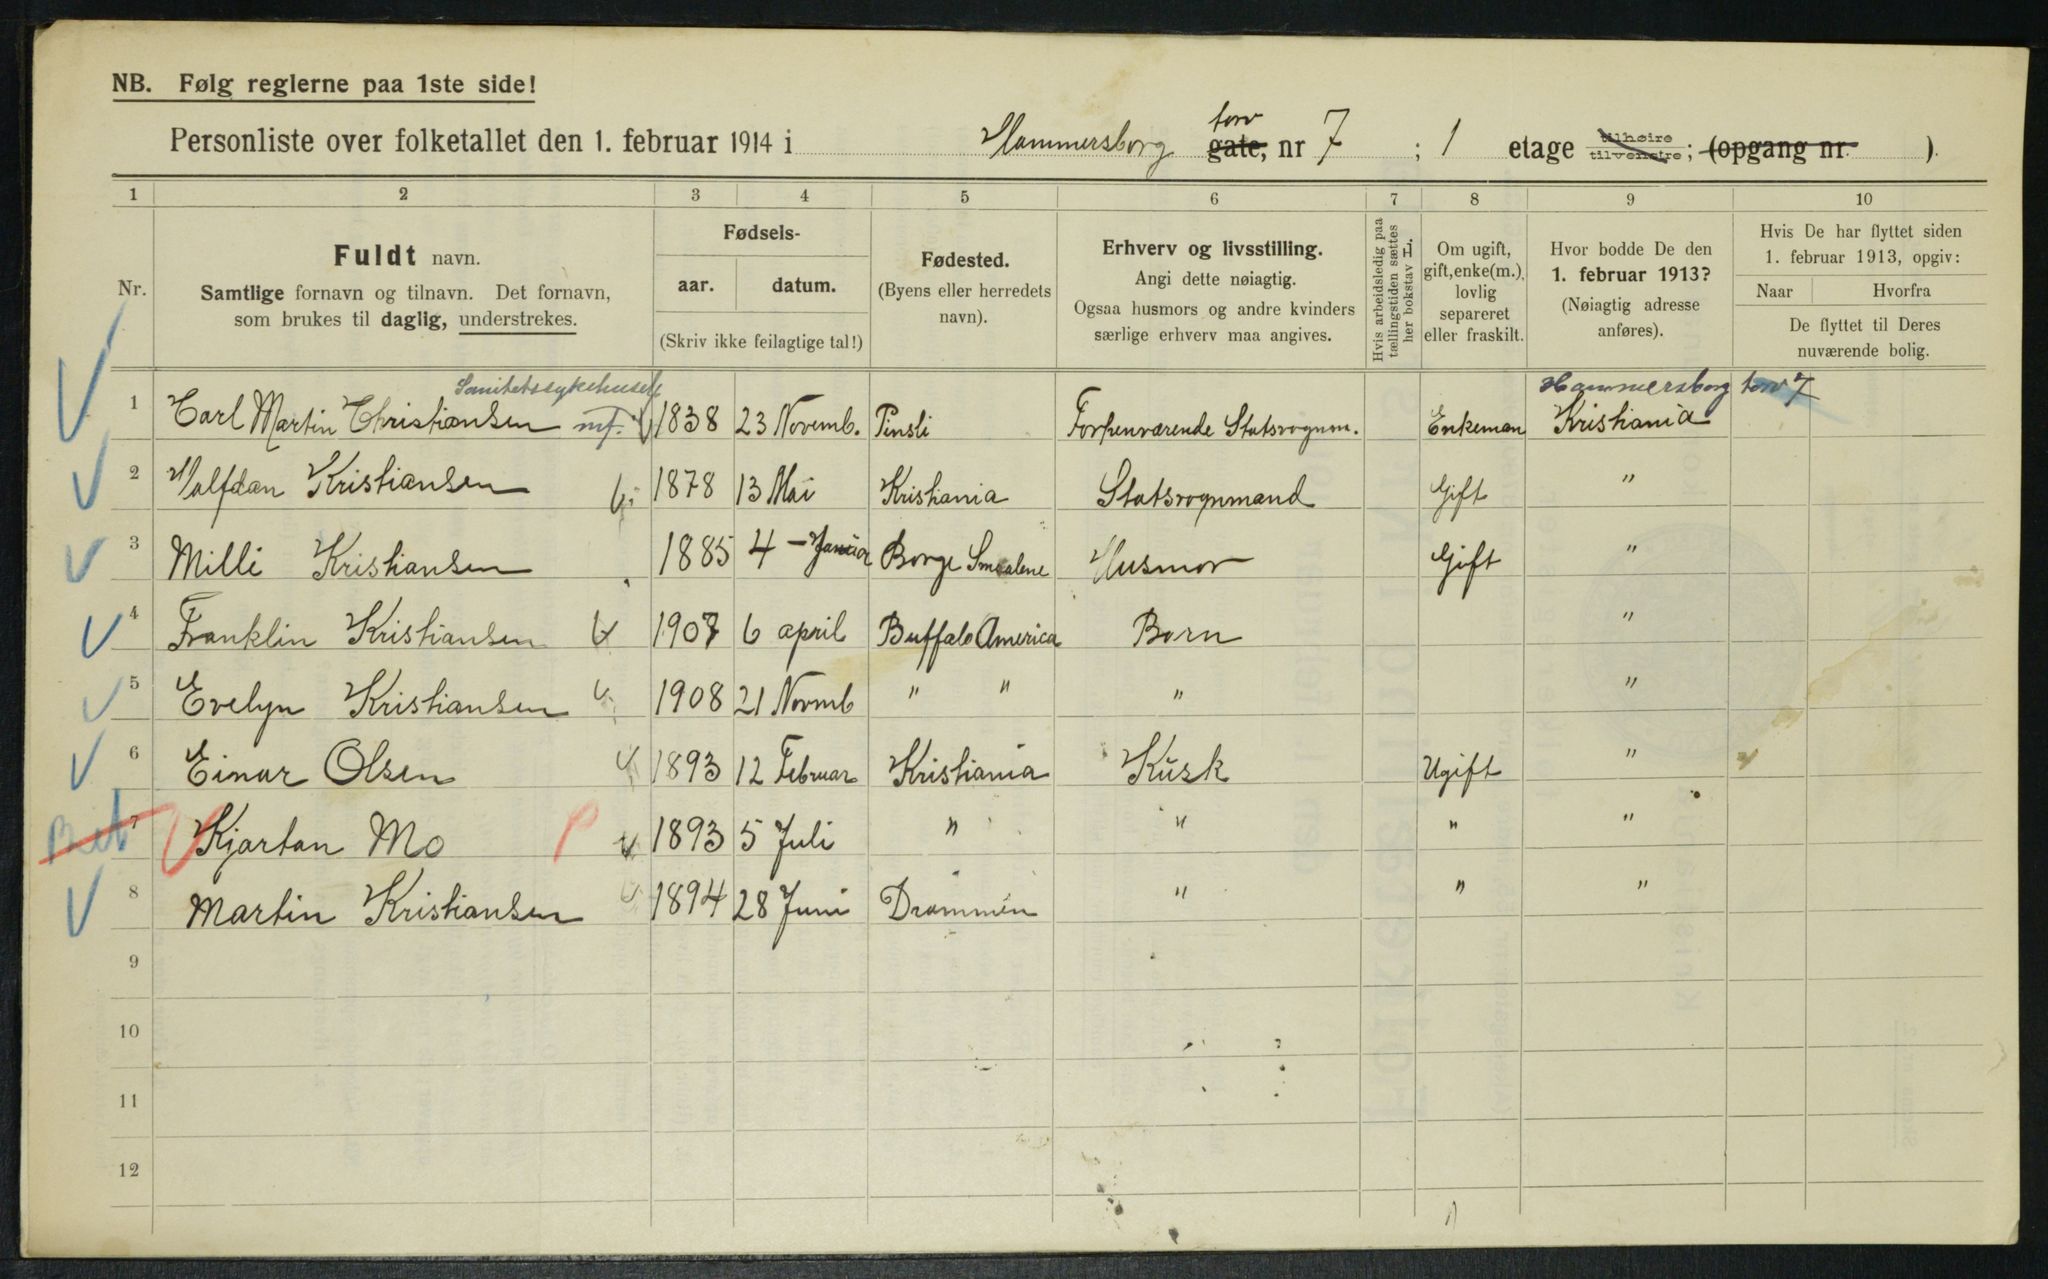 NB. Følg reglerne paa 1ste side!
Personliste over folketallet den 1. februar 1914 i Hammersborg torv gate, nr 7 ; 1 etage tilhøire tilvenstre; (opgang nr. ).
1 2 3 4 5 6 7 8 9 10
Nr.
Fuldt navn.
Samtlige fornavn og tilnavn. Det fornavn,
som brukes til daglig, understrekes.
Fødsels-
aar. datum.
(Skriv ikke feilagtige tal!)
Fødested.
(Byens eller herredets
navn).
Erhverv og livsstilling.
Angi dette nøiagtig.
Ogsaa husmors og andre kvinders
særlige erhverv maa angives.
Hvis arbeidsledig paa
tællingstiden sættes
her bokstav L.
Om ugift,
gift, enke(m.),
lovlig
separeret
eller fraskilt.
Hvor bodde De den
1. februar 1913?
(Nøiagtig adresse
anføres).
Hvis De har flyttet siden
1. februar 1913, opgiv:
Naar Hvorfra
De flyttet til Deres
nuværende bolig.
Sanitetssykehuset Hammersborg torv 7
1 Carl Martin Christiansen mf. 1838 23 Novemb. Pinsli Forhenværende Statsvognm. Enkeman Kristiania
2 Halfdan Kristiansen 1878 13 Mai Kristiania Statsvognmand Gift "
3 Milli Kristiansen 1885 4 - Januar Borge Smaalene Husmor Gift "
4 Franklin Kristiansen 1907 6 april Buffalo America Barn "
5 Evelyn Kristiansen 1908 21 Novmb " " " "
6 Einar Olsen 1893 12 Februar Kristiania Kusk Ugift "
7 Kjartan Mo 1893 5 Juli " " " "
8 Martin Kristiansen 1894 28 Juni Drammen " " "
9
10
11
12